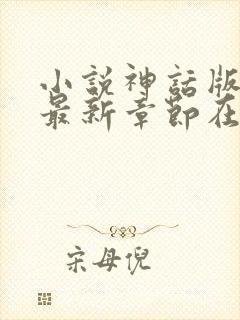 小説神話版
最新章節在
宋母倪